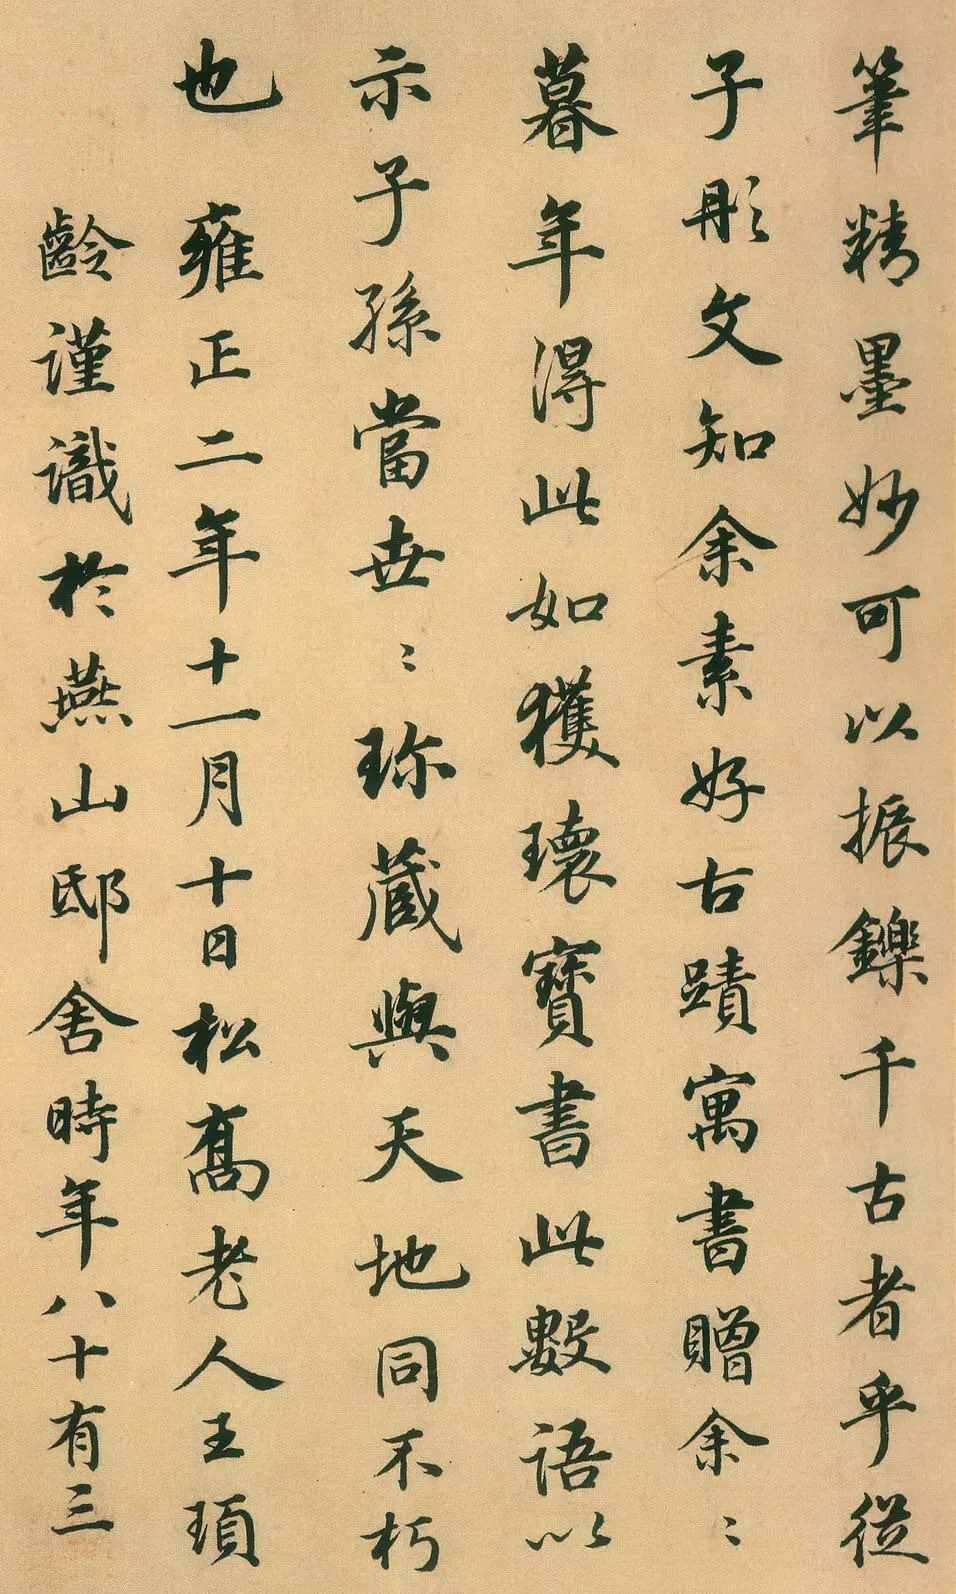 筆精墨妙可以振鑠千古者乎從
子彤文知余素好古蹟寓書贈余〻
暮年得此如獲瓌寶書此數語以
示子孫當世〻珎藏與天地同不朽
也 雍正二年十一月十日松喬老人王頊
齡謹識於燕山邸舍時年八十有三